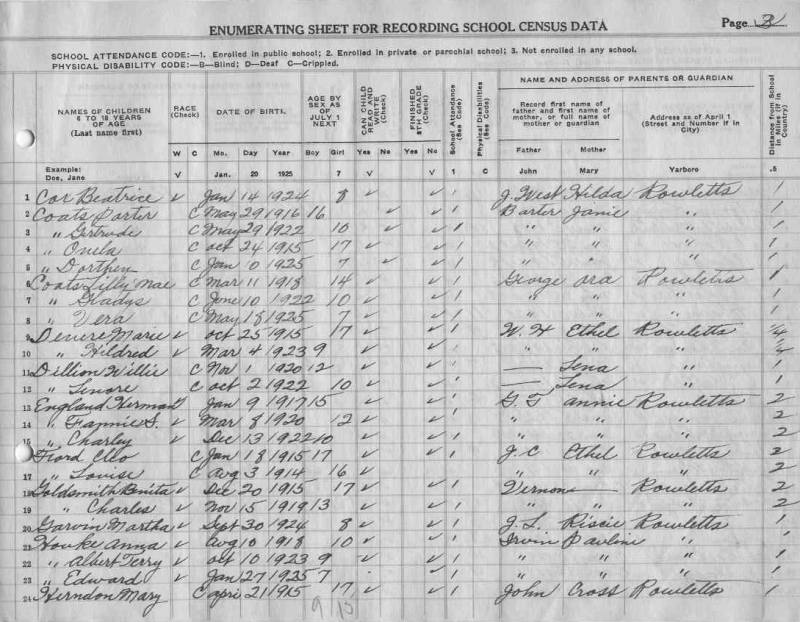 ENUMERATING SHEET FOR RECORDING SCHOOL CENSUS DATA Page 3
SCHOOL ATTENDANCE CODE:—1. Enrolled in public school; 2. Enrolled in private or parochial school; 3. Not enrolled in any school.
PHYSICAL DISABILITY CODE:—B—Blind; D—Deaf C—Crippled.
NAMES OF CHILDREN 6 TO 18 YEARS OF AGE (Last name first) RACE (Check) DATE OF BIRTH AGE BY SEX AS OF JULY 1 NEXT CAN CHILD READ AND WRITE (Check) FINISHED 8TH GRADE (Check) School Attendance (See Code) Physical Disabilities (See Code) NAME AND ADDRESS OF PARENTS OR GUARDIAN Distance from School in Miles (if in Country)
Record first name of father and first name of mother, or full name of mother or guardian Address as of April 1 (Street and Number if in City)
W C Mo. Day Year Boy Girl Yes No Yes No Father Mother
Example: Doe, Jane V Jan. 20 1925 7 V V 1 C John Mary Yarboro .5
1 Cox Beatrice v Jan 14 1924 8 v v 1 J. West Hilda Rowletts 1
2 Coats Porter C May 29 1916 16 v v 1 Barter Janie " 1
3 " Gertrude C May 29 1922 10 v v 1 " " " 1
4 " Onela C oct 24 1915 17 v v 1 " " " 1
5 " Dorthey C Jan 10 1925 7 v v 1 " " " 1
6 Coats Lilly Mae C Mar 11 1918 14 v v 1 George ora Rowletts 1
7 " Gladys C June 10 1922 10 v v 1 " " " 1
8 " Vera C May 18 1925 7 v v 1 " " " 1
9 Denere Marie v oct 25 1915 17 v v 1 W. H Ethel Rowletts 1/4
10 " Hildred v Mar 4 1923 9 v v 1 " " " 1/4
11 Dillion Willie C Nov 1 1920 12 v v 1 — Lena " 1
12 " Linore C oct 2 1922 10 v v 1 — Lena " 1
13 England Herman v Jan 9 1917 15 v v 1 G. T annie Rowletts 2
14 " Fannie S. v Mar 8 1920 12 v v 1 " " " 2
15 " Charley v Dec 13 1922 10 v v 1 " " " 2
Ford Cleo C Jan 18 1915 17 v v 1 J. C Ethel Rowletts 2
17 " Louise C Aug 3 1914 16 v v " " " 2
18 Goldsmith Benita v Dec 20 1915 17 v v 1 Vernon — Rowletts 2
19 " Charles v Nov 15 1919 13 v v 1 " " 2
20 Garvin Martha v Sept 30 1924 8 v v 1 J. L. Riscie Rowletts 1
21 Houke Anna v Aug 10 1918 10 v v 1 Irvin Pauline " 1
22 " Albert Terry v oct 10 1923 9 v v 1 " " " 1
23 " Edward v Jan 27 1925 7 v 1 " " " 1
24 Herndon Mary C apri 21 1915 17 v v 1 John Cross Rowletts 1
9 15